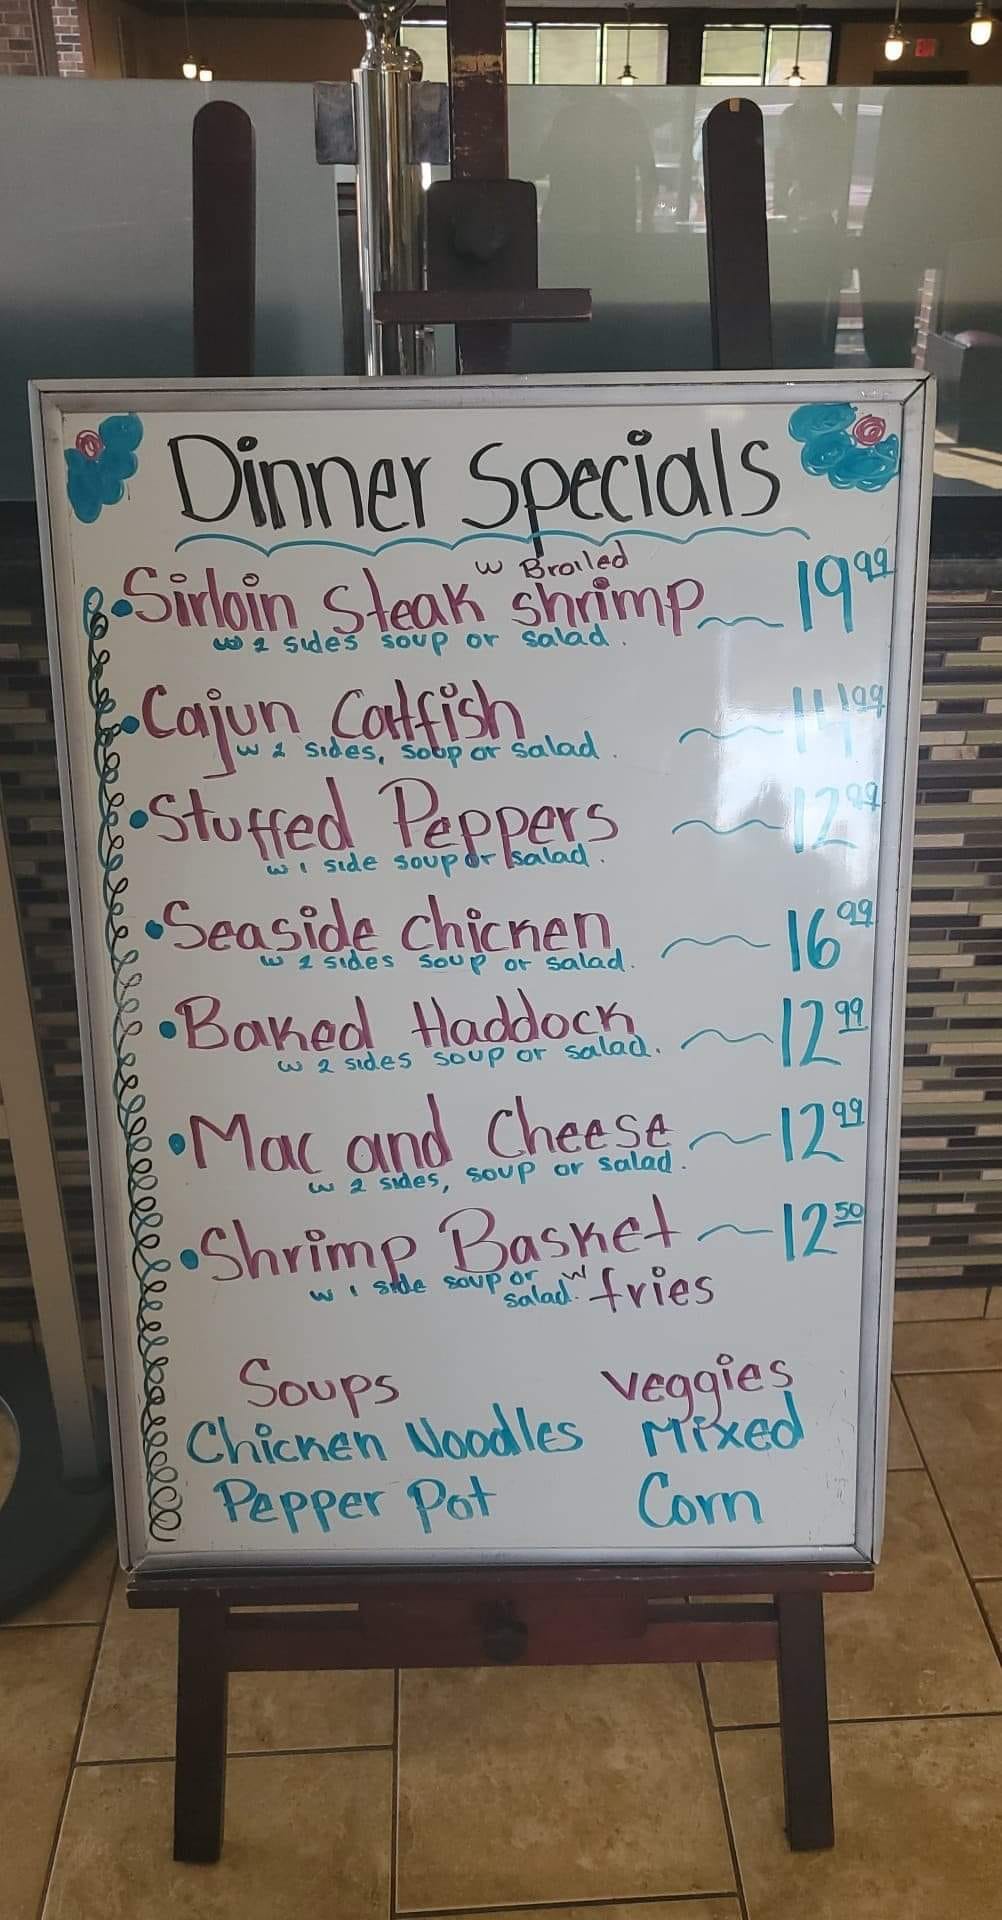 Dinner Specials
• Sirloin Steak w Broiled shrimp 19 99
w 2 sides soup or salad.
• Cajun Catfish 14 99
w 2 sides, soup or salad.
• Stuffed Peppers 12 99
w 1 side soup or salad.
• Seaside chicken 16 99
w 2 sides soup or salad.
• Baked Haddock 12 99
w 2 sides soup or salad.
• Mac and Cheese 12 99
w 2 sides, soup or salad.
• Shrimp Basket w fries 12 50
w 1 side soup or salad.
Soups
Chicken Noodles
Pepper Pot
veggies
Mixed
Corn